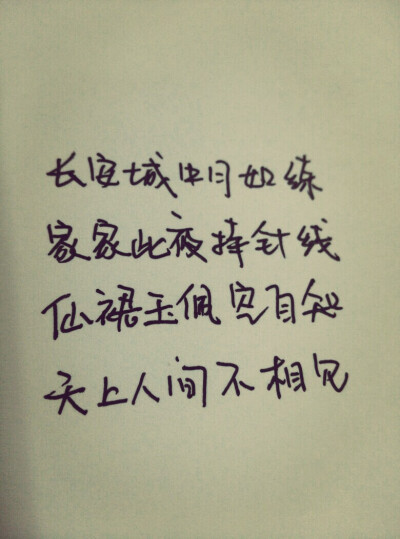 长安城中月如练
家家此夜持针线
仙裙玉佩空自知
天上人间不相见